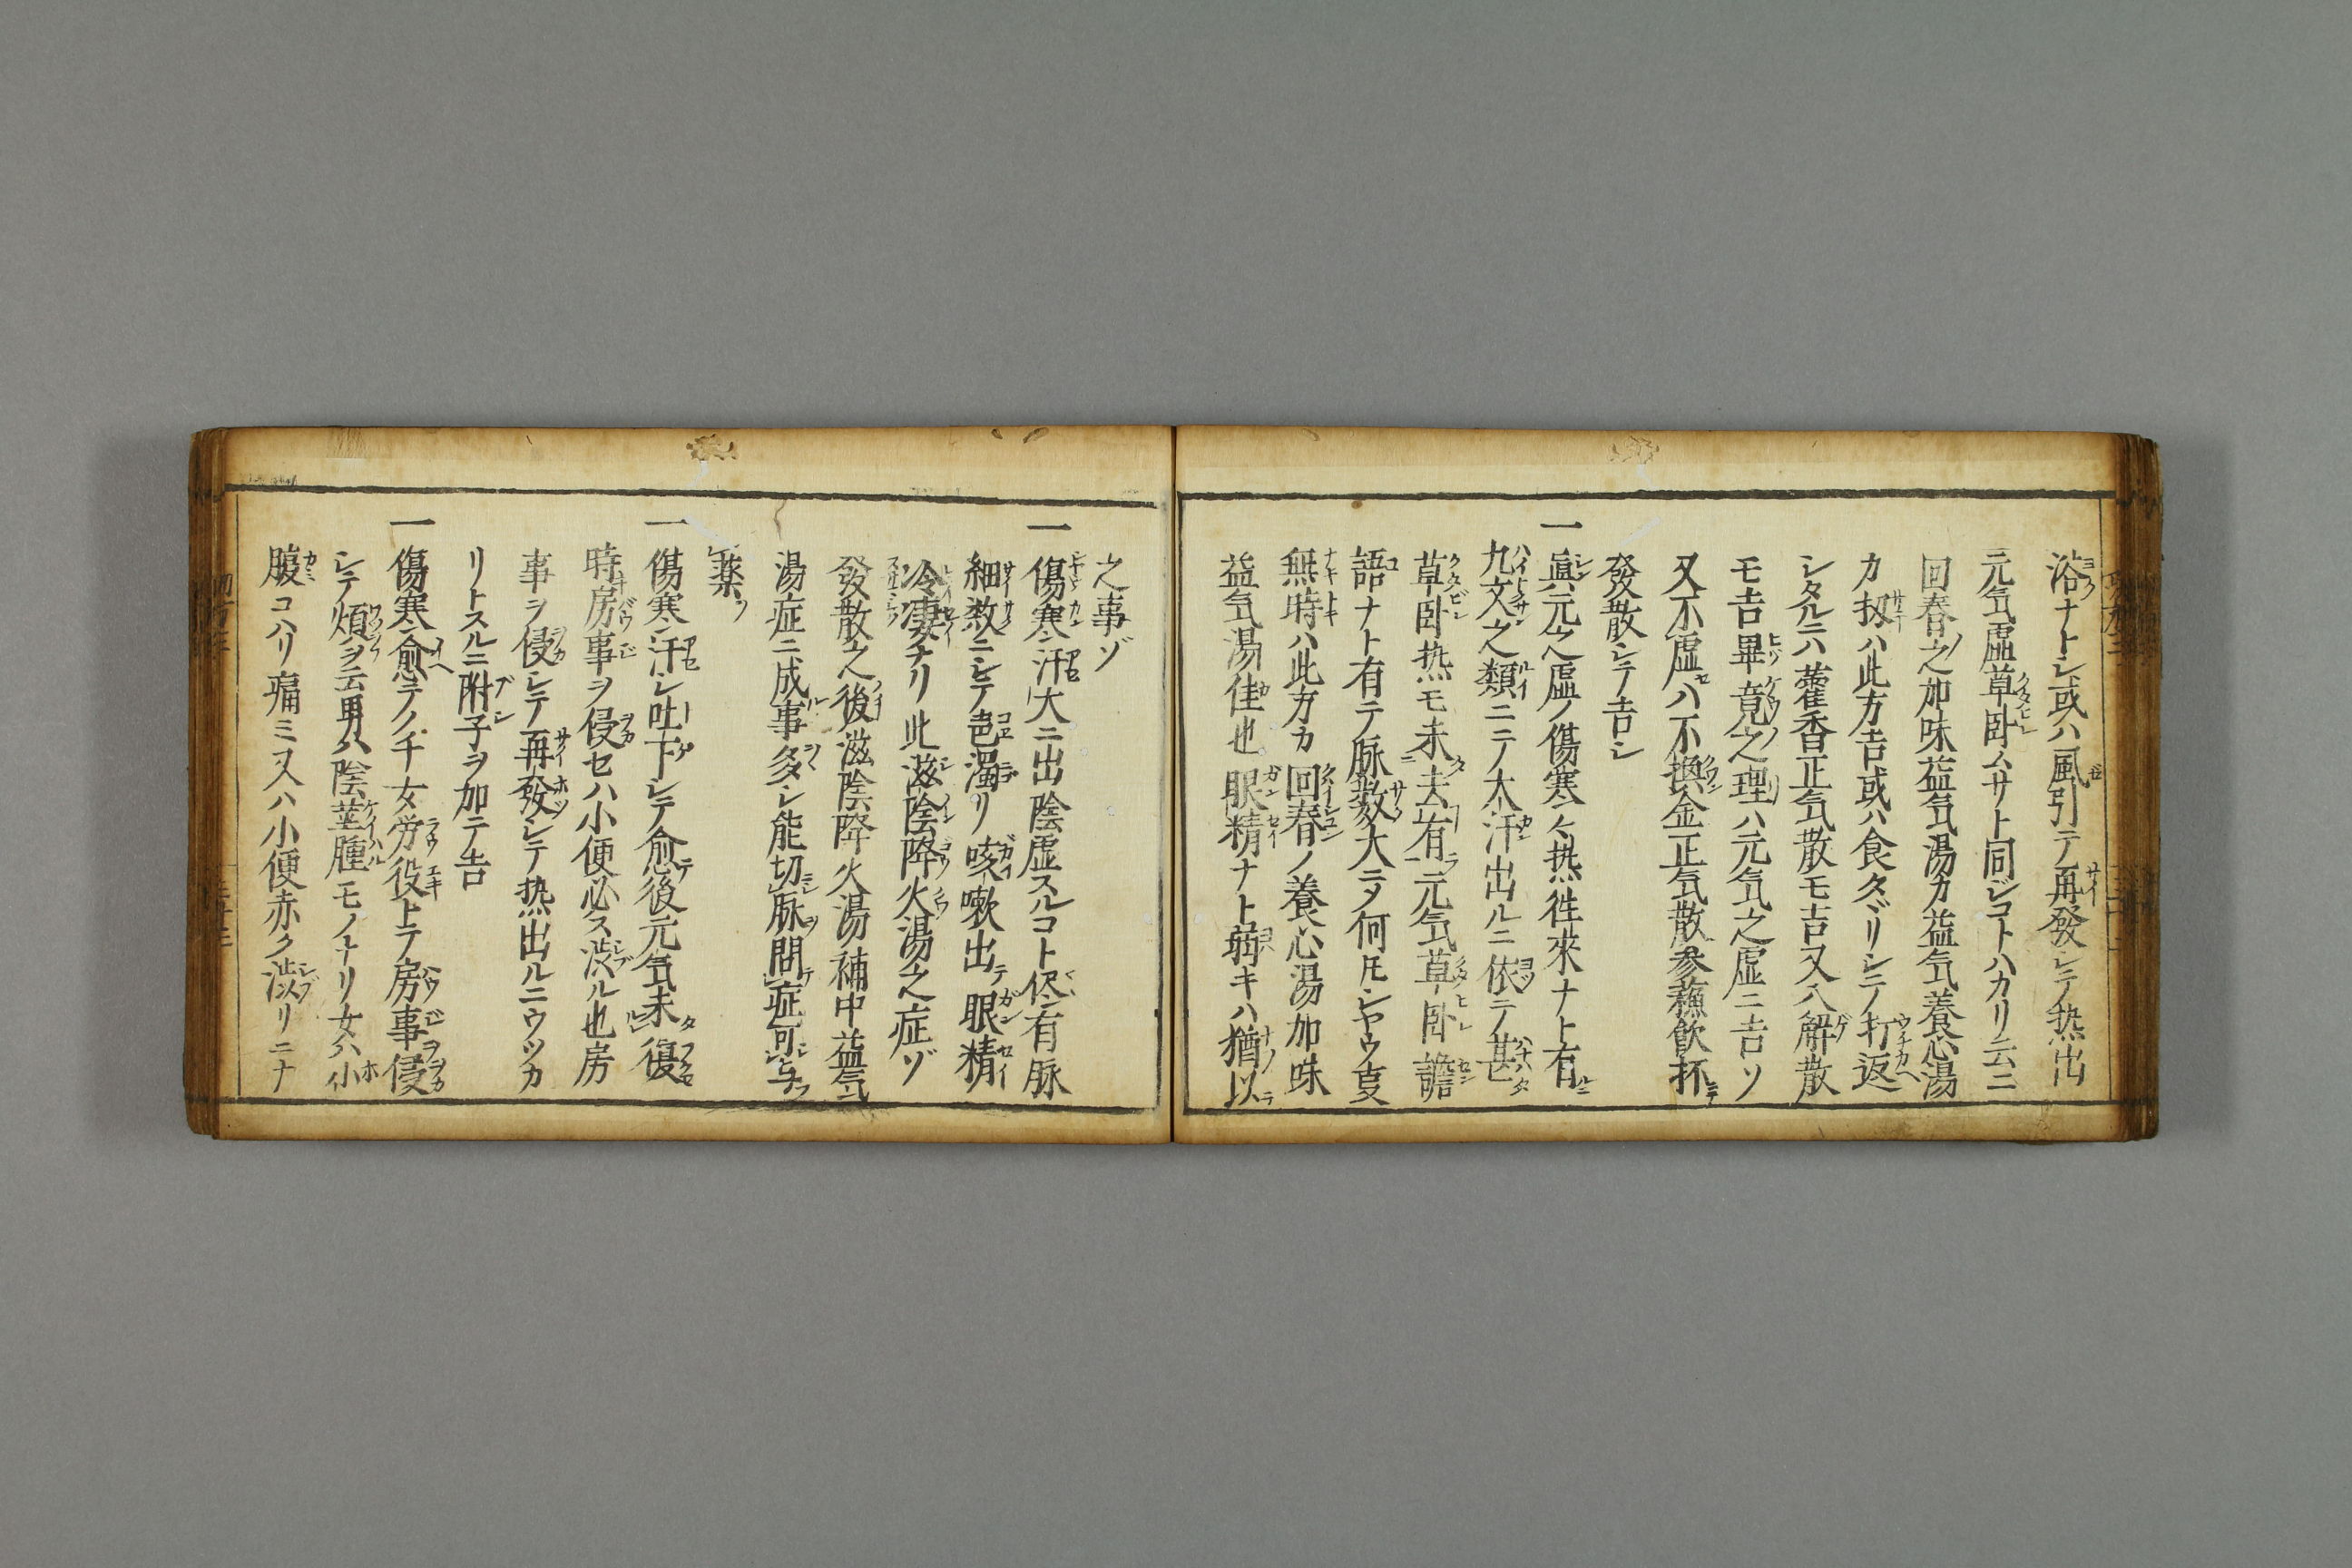 浴ナトシ或ハ風引テ再發シテ热出
元気虛草卧ムサト同シコトハカリ云ニ
回春之加味益気湯カ益気養心湯
カ扨ハ此方吉或ハ食タヾリシテ打返
シタルニハ藿香正気散モ吉又ハ解散
モ吉畢竟之理ハ元気之虛ニ吉ソ
又不虛ハ不換金正気散参蘓飲杯
發散シテ吉シ
一真元之虛ノ傷寒ハ热徃來ナト有
九文之類ニテ大汗出ルニ依テ甚
草卧热モ未去有元気草卧譫
語ナト有テ脉数大ニタ何ト乄シヤウ叓
無時ハ此方カ回春ノ養心湯加味
益気湯佳也眼精ナト弱キハ猶以
之事ゾ
一傷寒汗大ニ出陰虛スルコト侭有脉
細数ニシテ色濁リ咳嗽出テ眼精
冷凄ナリ此滋陰降火湯之症ゾ
發散之後滋陰降火湯補中益気
湯症ニ成事多シ能切脉問症可与
薬
一傷寒汗シ吐下シテ愈後元気未復
時房事ヲ侵セハ小便必ス渋ル也房
事ヲ侵シテ再發シテ热出ルニウツカ
リトスルニ附子ヲ加テ吉
一傷寒愈テノチ女労役トテ房事侵
シテ煩ヲ云男ハ陰莖腫モノナリ女ハ小
腹コハリ痛ミ又ハ小便赤ク渋リニナ